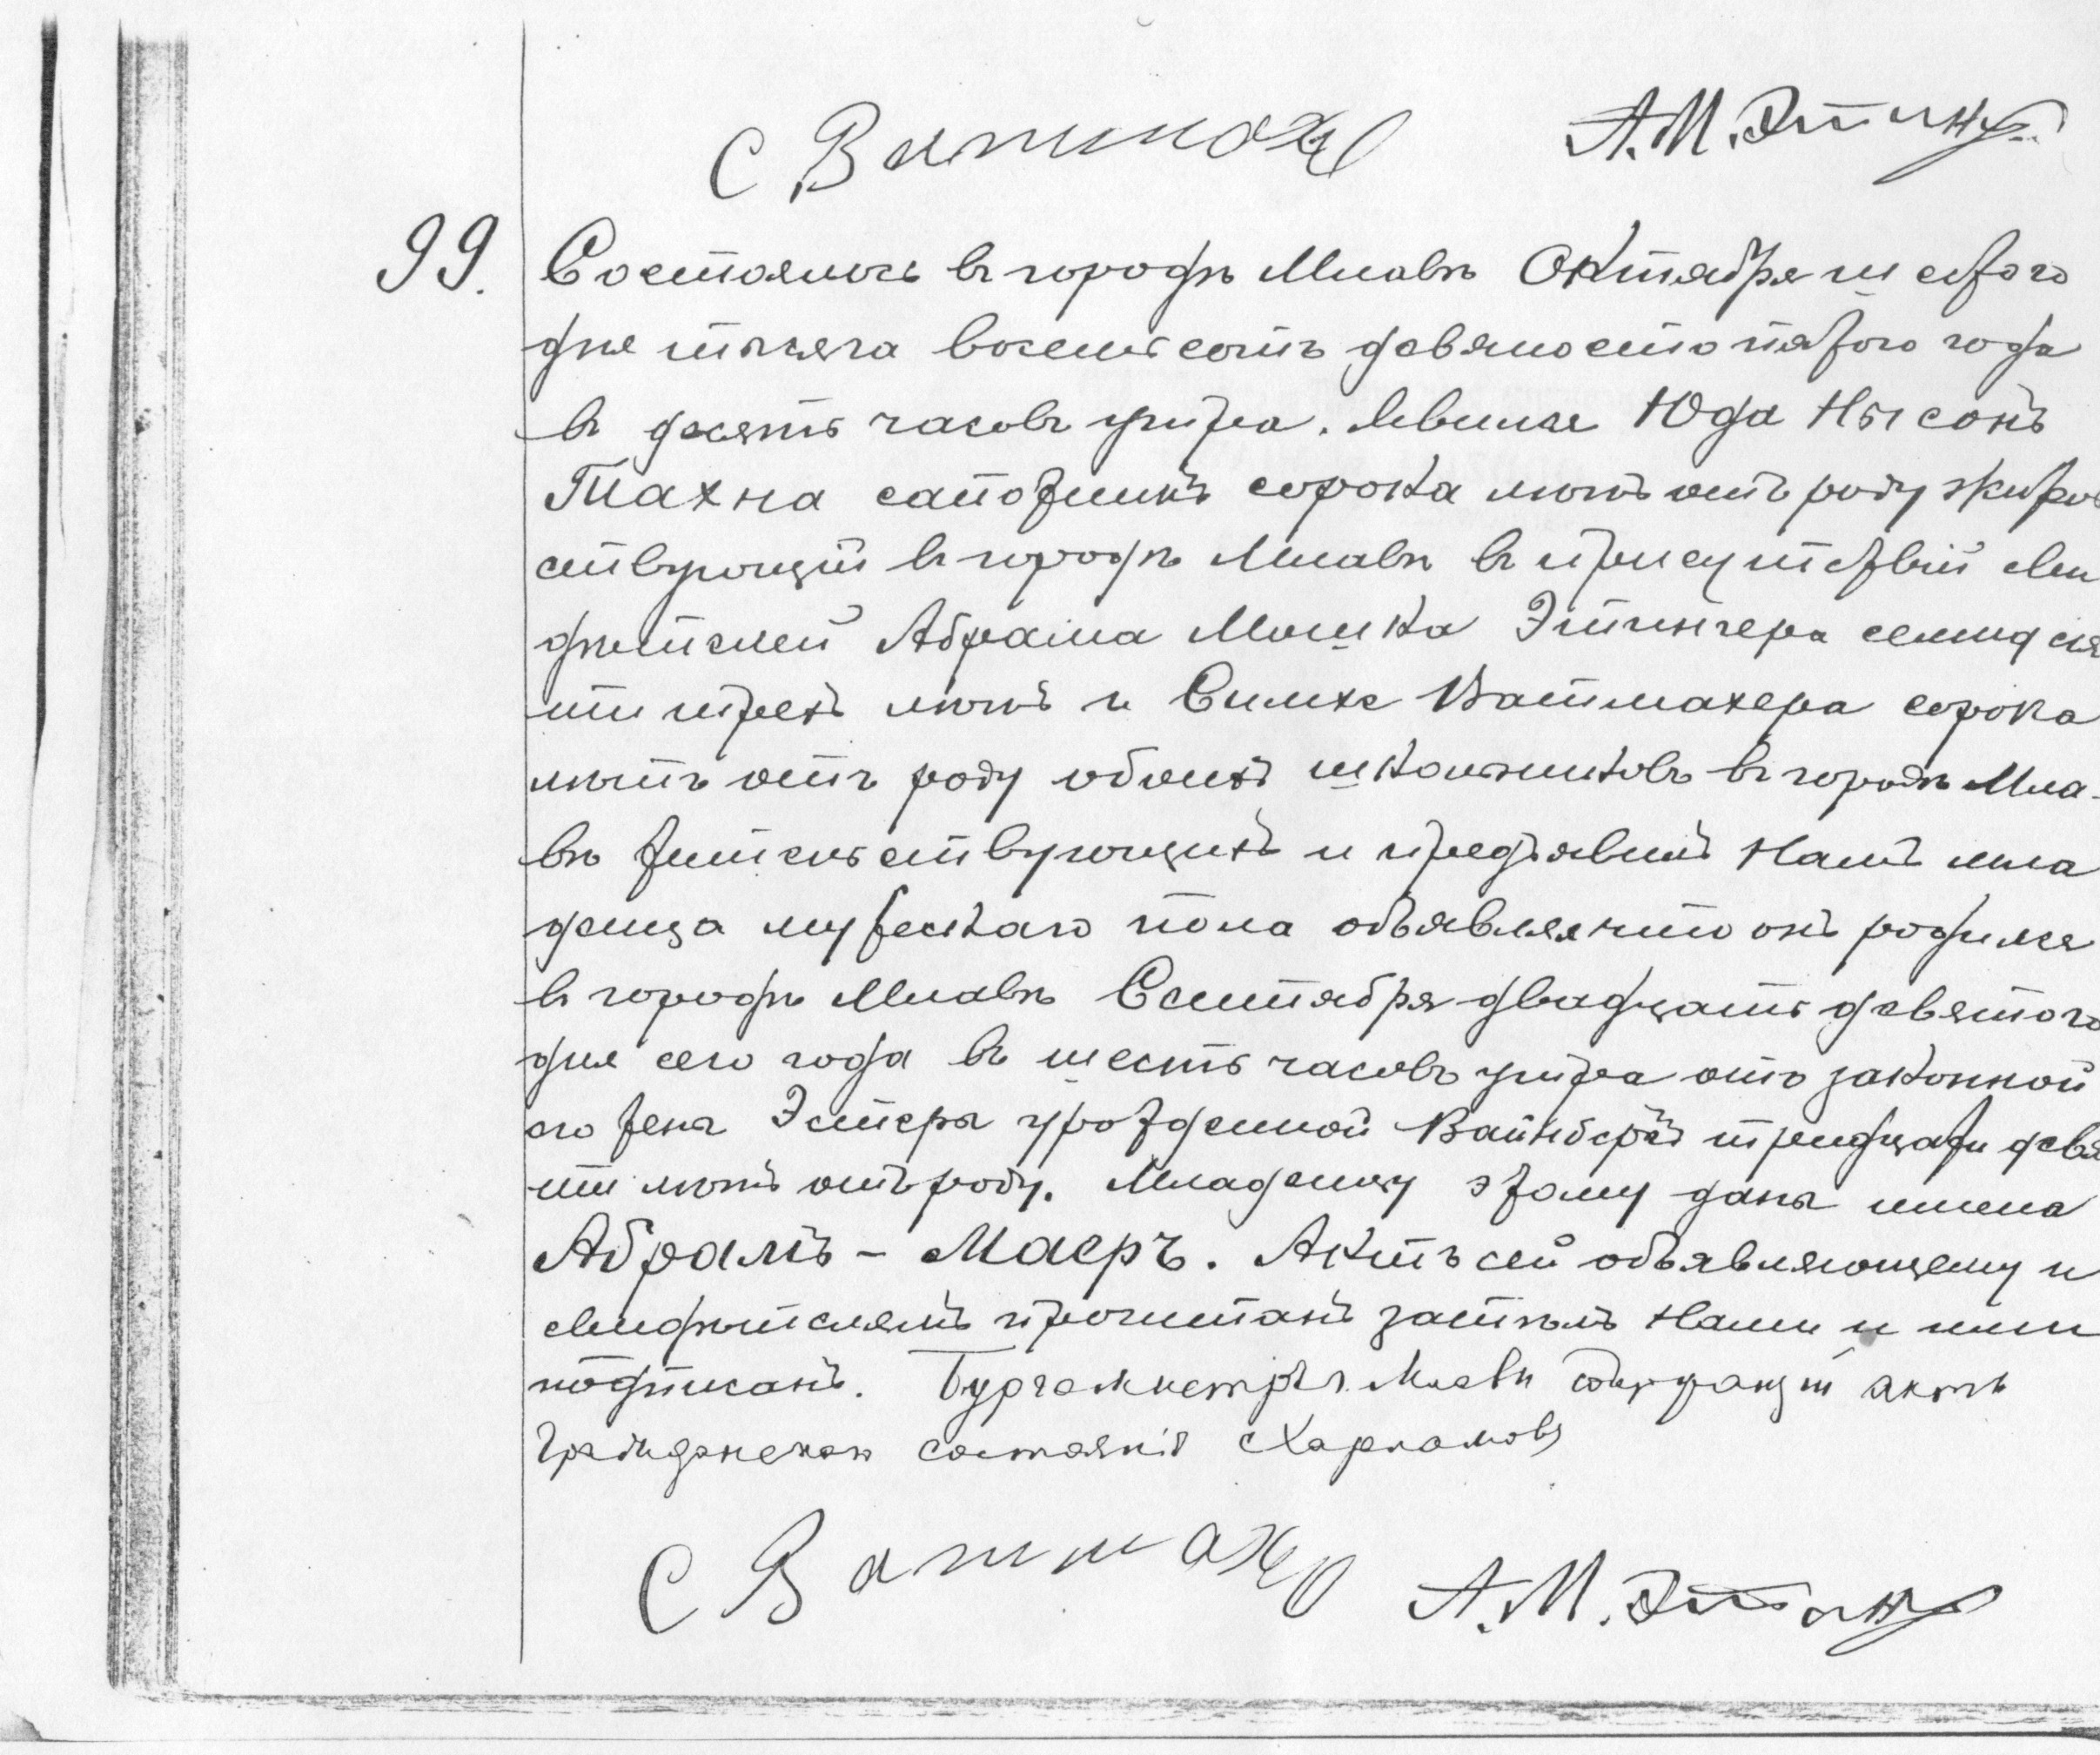 С Ватмахер А. М. Этингер
99. Состоялось въ городѣ Млавѣ Октября шестого
дня тысяча восемьсотъ девяносто пятого года
въ десять часовъ утра. Явился Юда Нысонъ
Тахна сапожникъ сорока лѣтъ отъ роду житель
ствующій въ городѣ Млавѣ въ присутствіи сви
дѣтелей Абрама Мошка Этингера семидеся
ти трехъ лѣтъ и Симхе Ватмахера сорока
лѣтъ отъ роду обоихъ школьниковъ въ городѣ Мла-
вѣ жительствующихъ и предъявилъ Намъ мла
денца мужескаго пола объявляя что онъ родился
въ городѣ Млавѣ Сентября двадцать девятого
дня сего года въ шесть часовъ утра отъ законной
его жены Эстеры урожденной Вайнбергъ тридцати девя
ти лѣтъ отъ роду. Младенцу этому даны имена
Абрамъ - Маеръ. Актъ сей объявляющему и
свидѣтелямъ прочитанъ затѣмъ Нами и ими
подписанъ. Бургомистръ г. Млавы Содержащій акты
гражданскаго состоянія
С Ватмахер А. М. Этингер